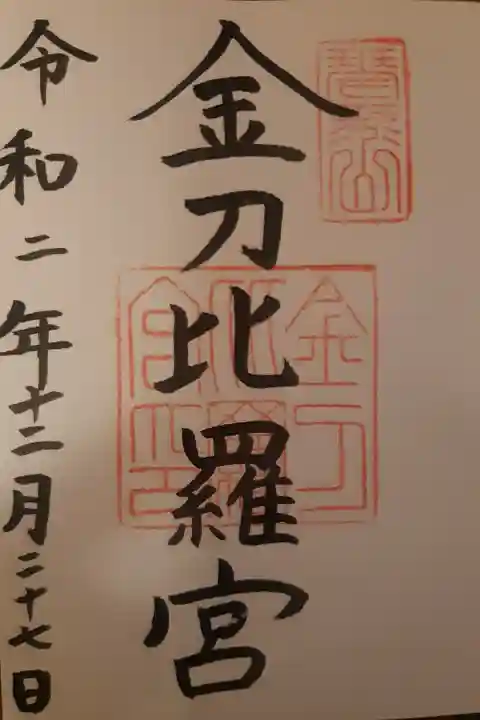 琴平山
金刀比羅宮
金刀
比羅
宮之印
令和二年十二月二十七日